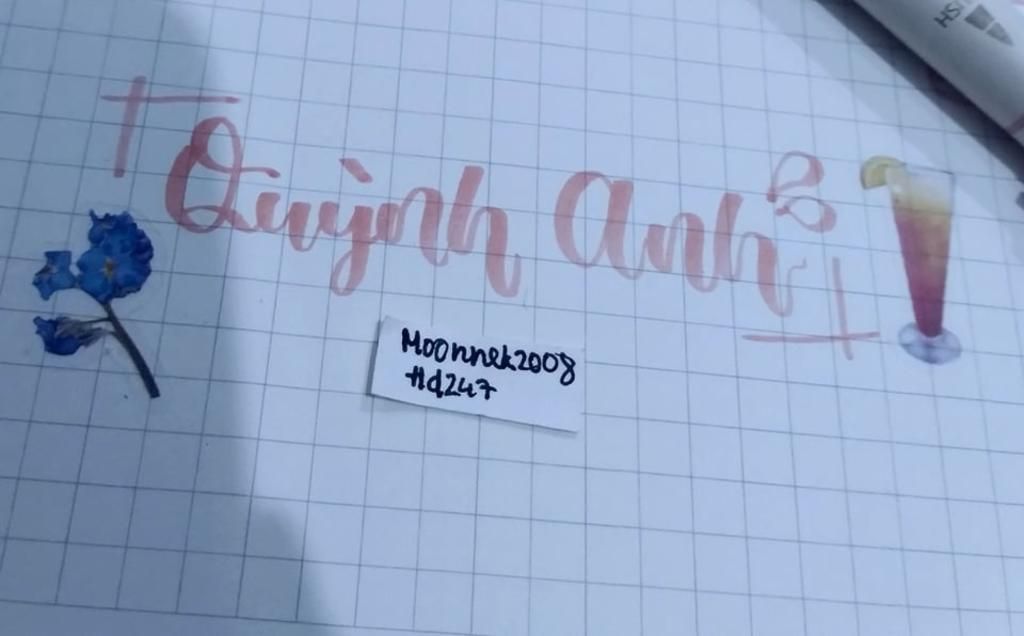 Quỳnh Anh
Moonnek2008
Hd247